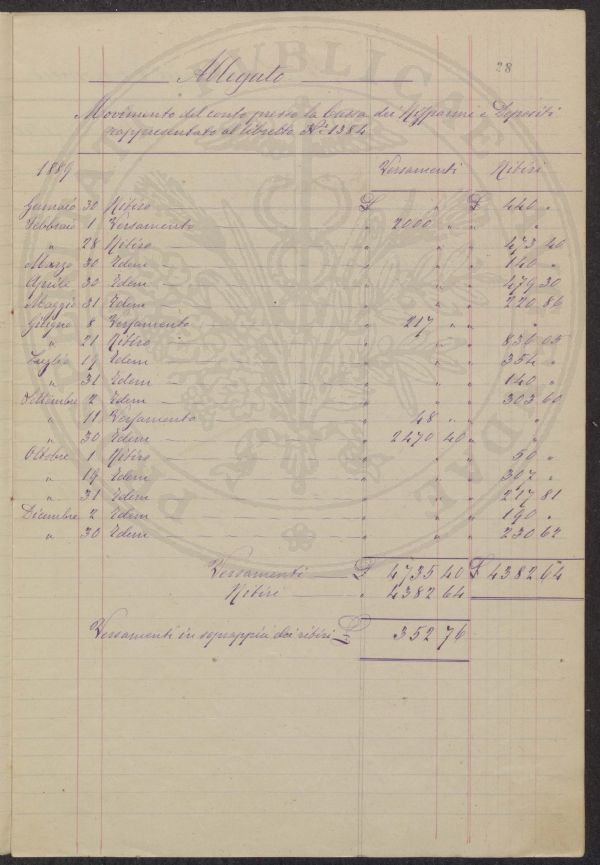 28
Allegato
Movimento del conto presso la Cassa dei Risparmi e Depositi
rappresentato al libretto N.º 1384
1889 Versamenti Ritiri
Gennaio 30 Ritiro £ " " £ 440 "
Febbraio 1 Versamento " 2000 " " "
" 28 Ritiro " " " 473 40
Marzo 30 Idem " " " 140 "
Aprile 30 Idem " " " 479 30
Maggio 31 Idem " " " 220 86
Giugno 8 Versamento " 217 " " "
" 21 Ritiro " " " 836 05
Luglio 19 Idem " " " 354 "
" 31 Idem " " " 140 "
Settembre 2 Idem " " " 303 60
" 11 Versamento " 48 " " "
" 30 Idem " 2470 40 " "
Ottobre 1 Ritiro " " " 50 "
" 19 Idem " " " 307 "
" 31 Idem " " " 217 81
Dicembre 2 Idem " " " 190 "
" 30 Idem " " " 230 62
Versamenti £ 4735 40 £ 4382 64
Ritiri " 4382 64
Versamenti in soprappiù dei ritiri £ 352 76
PUBLICAE